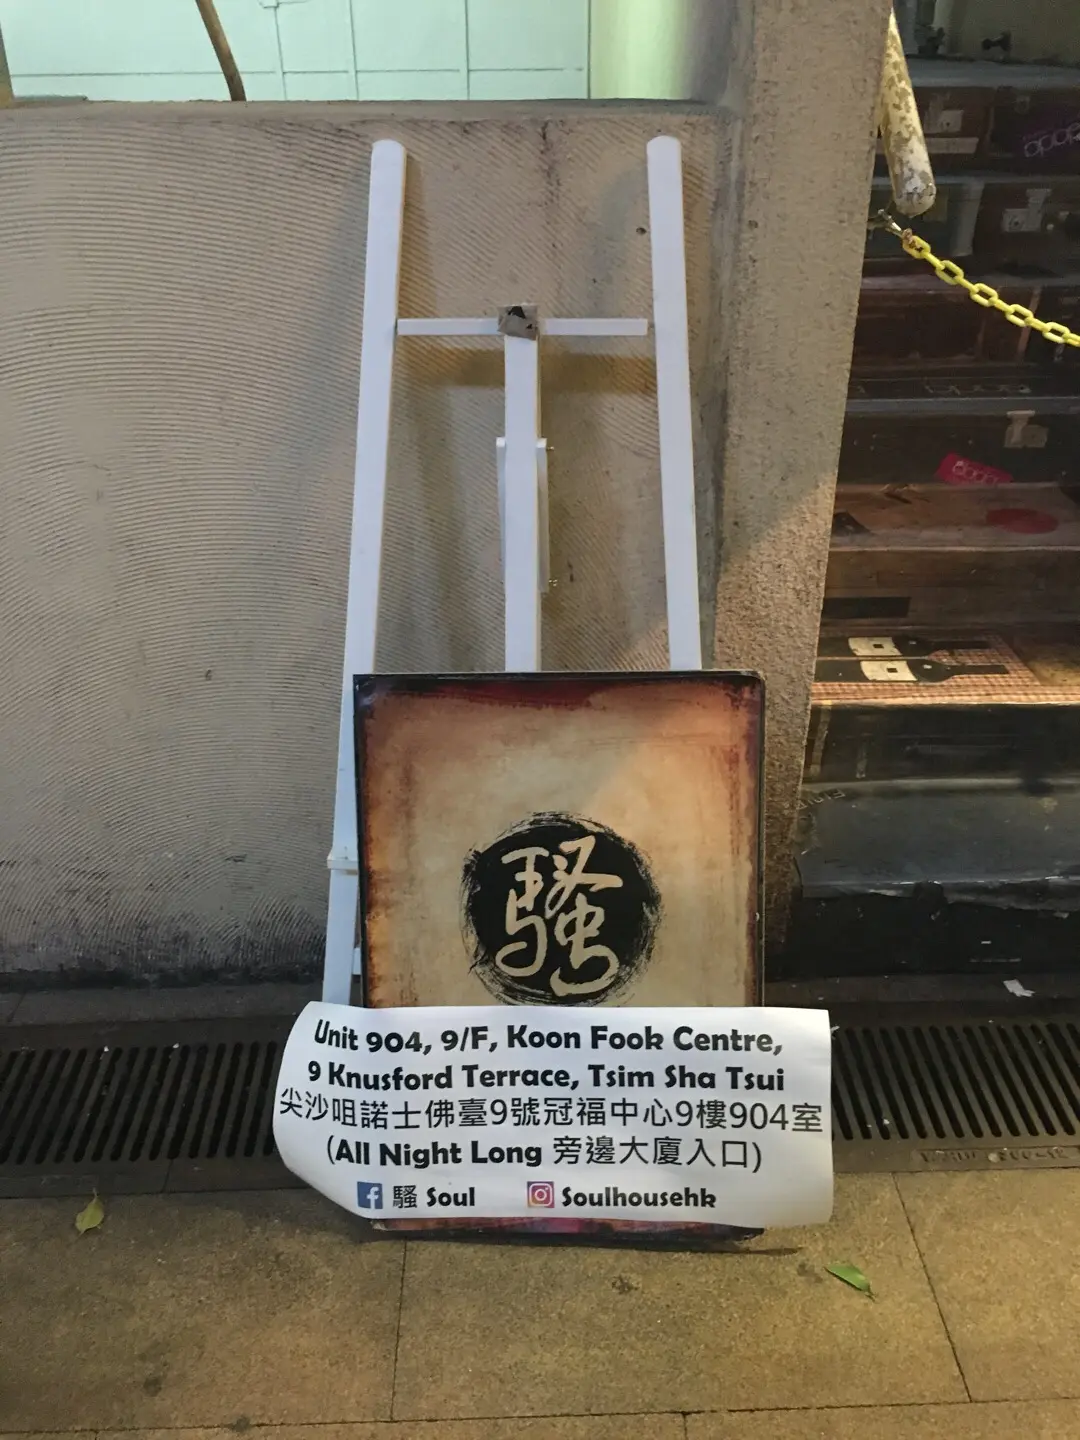 騷
Unit 904, 9/F, Koon Fook Centre,
9 Knusford Terrace, Tsim Sha Tsui
尖沙咀諾士佛臺9號冠福中心9樓904室
(All Night Long 旁邊大廈入口)
騷 Soul Soulhousehk